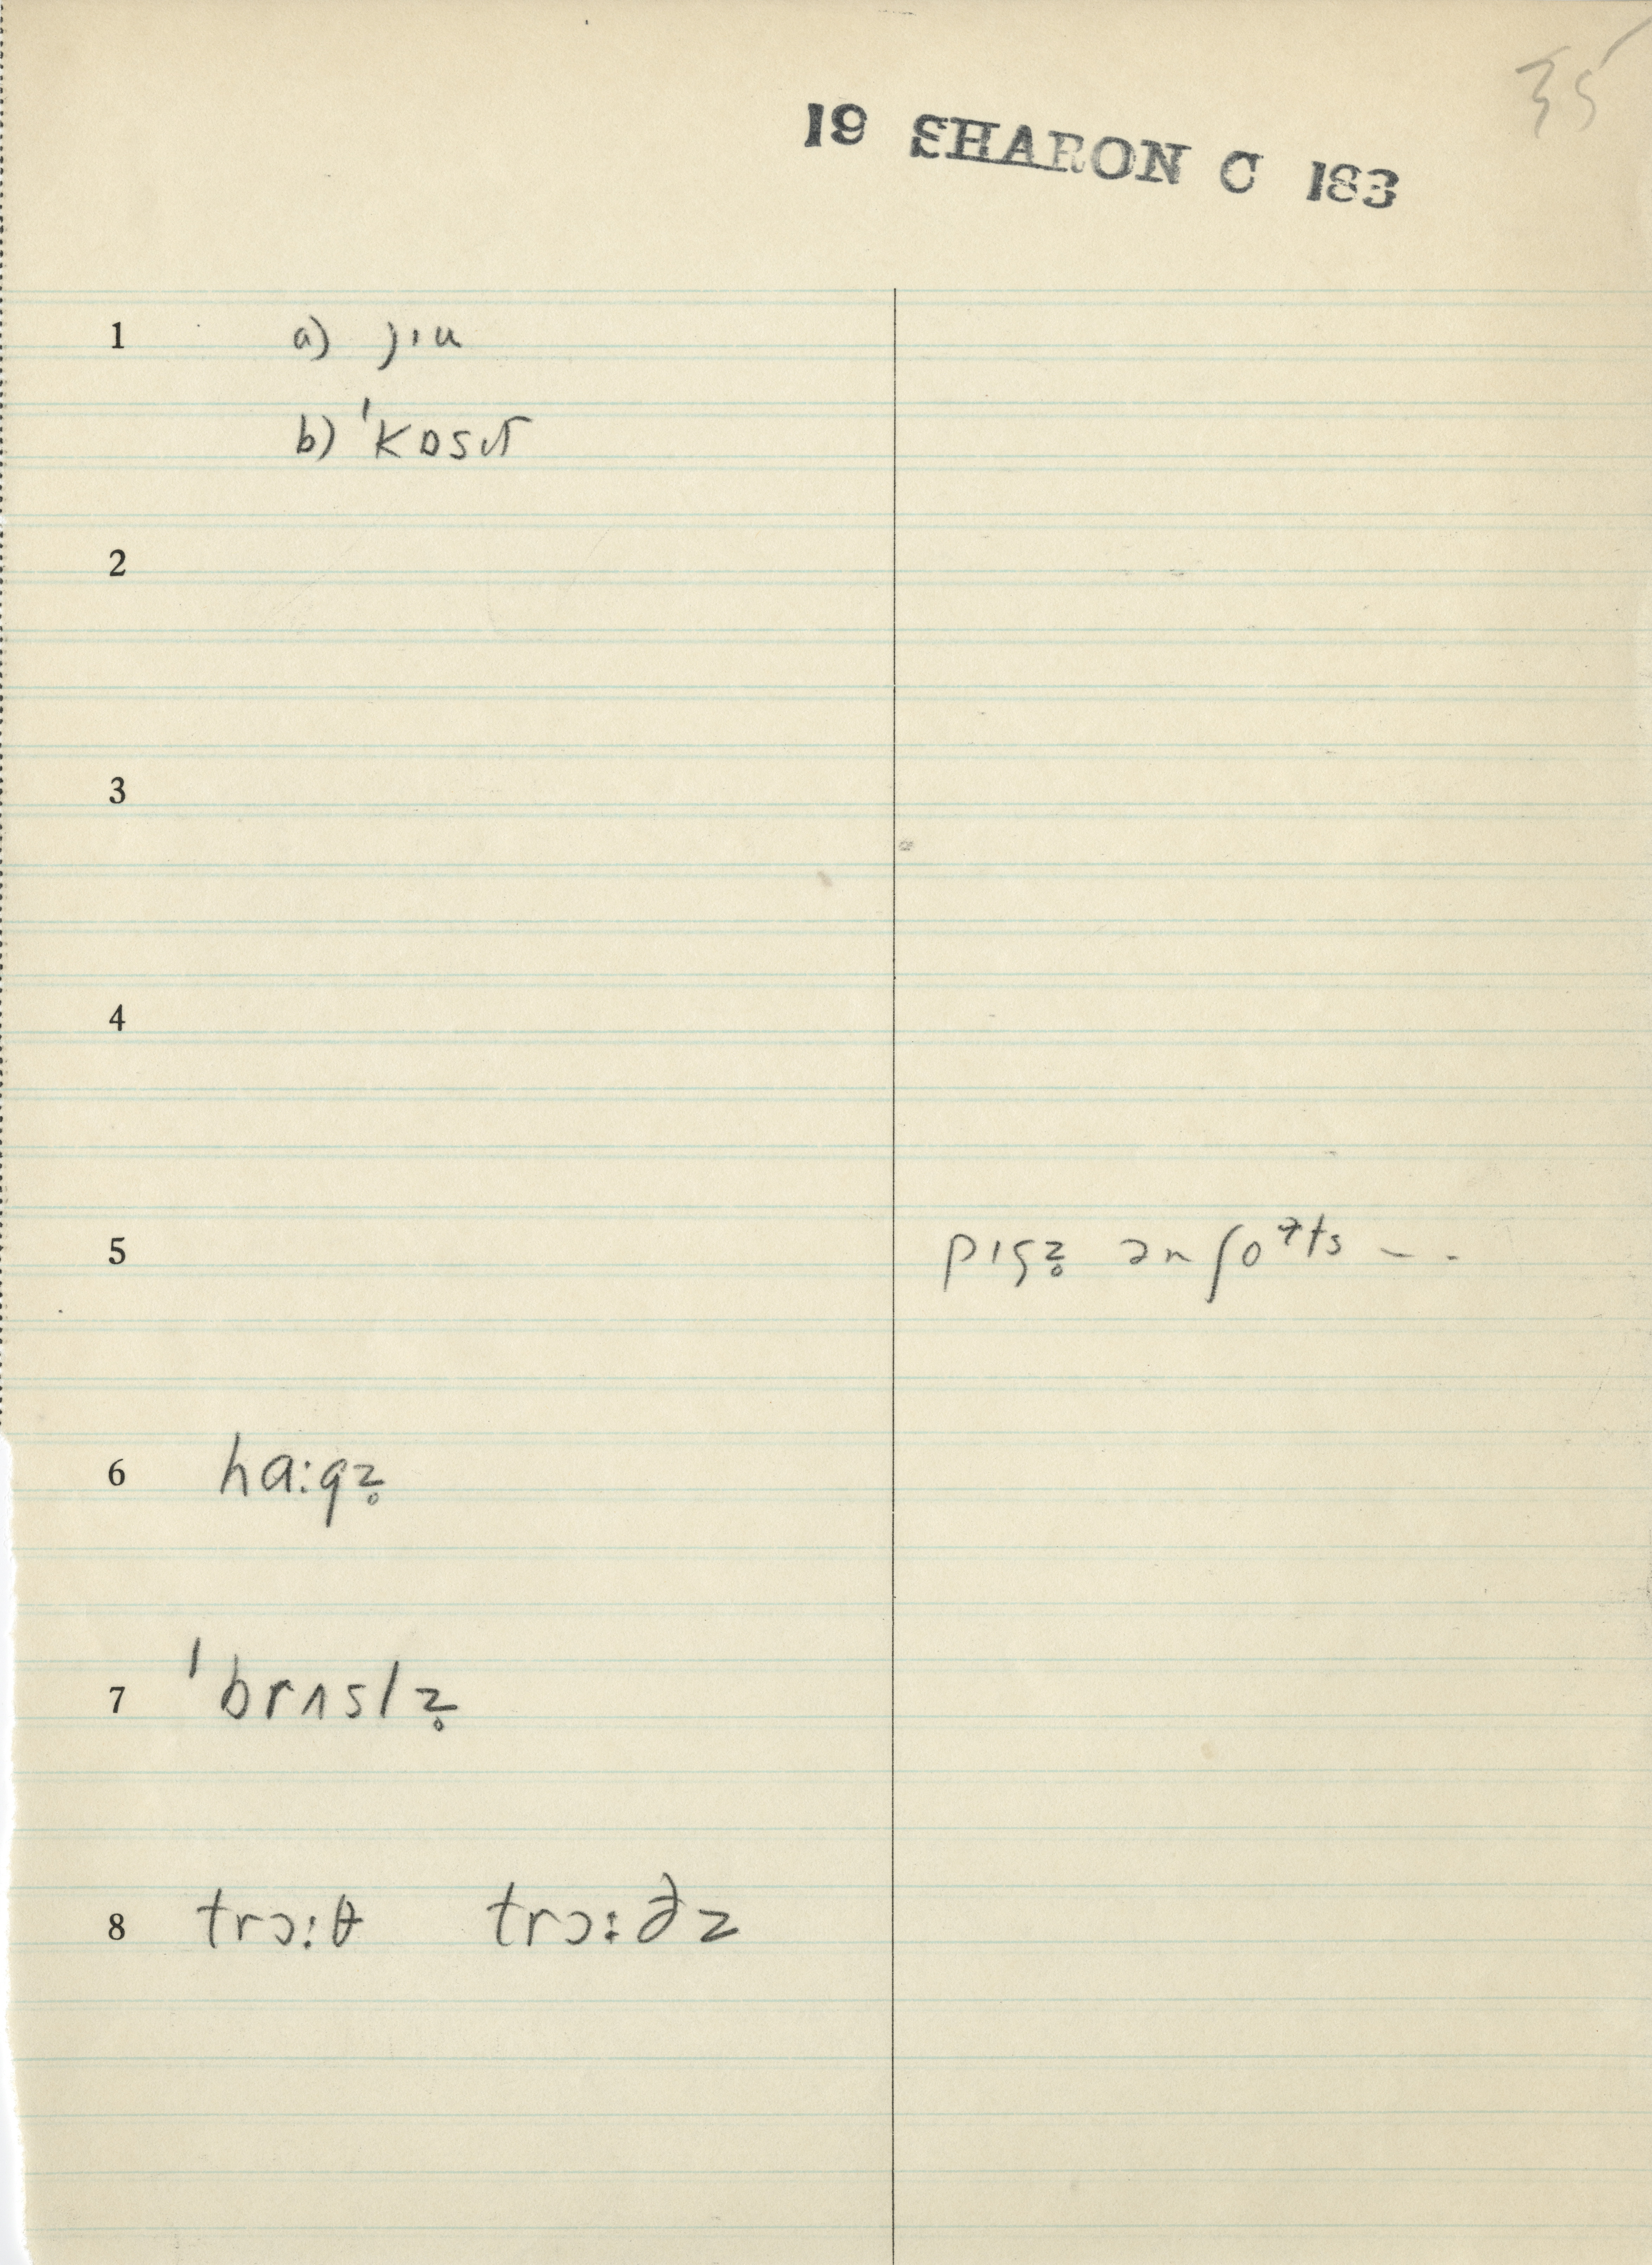 35
19 SHARON C 183
1 a) jɪu
b) ˈkɒsɪt
2
3
4
5 pɪgz̥ ən ʃoᵊts – -
6 hɑ:gz̥
7 ˈbrʌslz̥
8 trɔ:θ trɔ:ðz